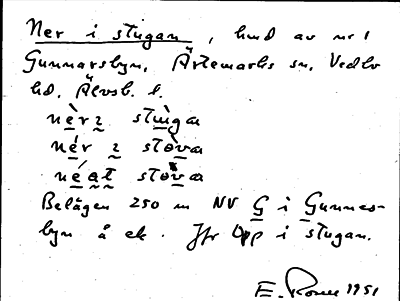 Ner i stugan, hmd av nr 1
Gunnarsbyn, Ärtemarks sn, Vedbo
hd, Älvsb. l.
nèrɿ stùga
nér ɿ stòva
néat stòva
Belägen 250 m NV G i Gunnars-
byn å ek. Jfr Upp i stugan.
E. 1951